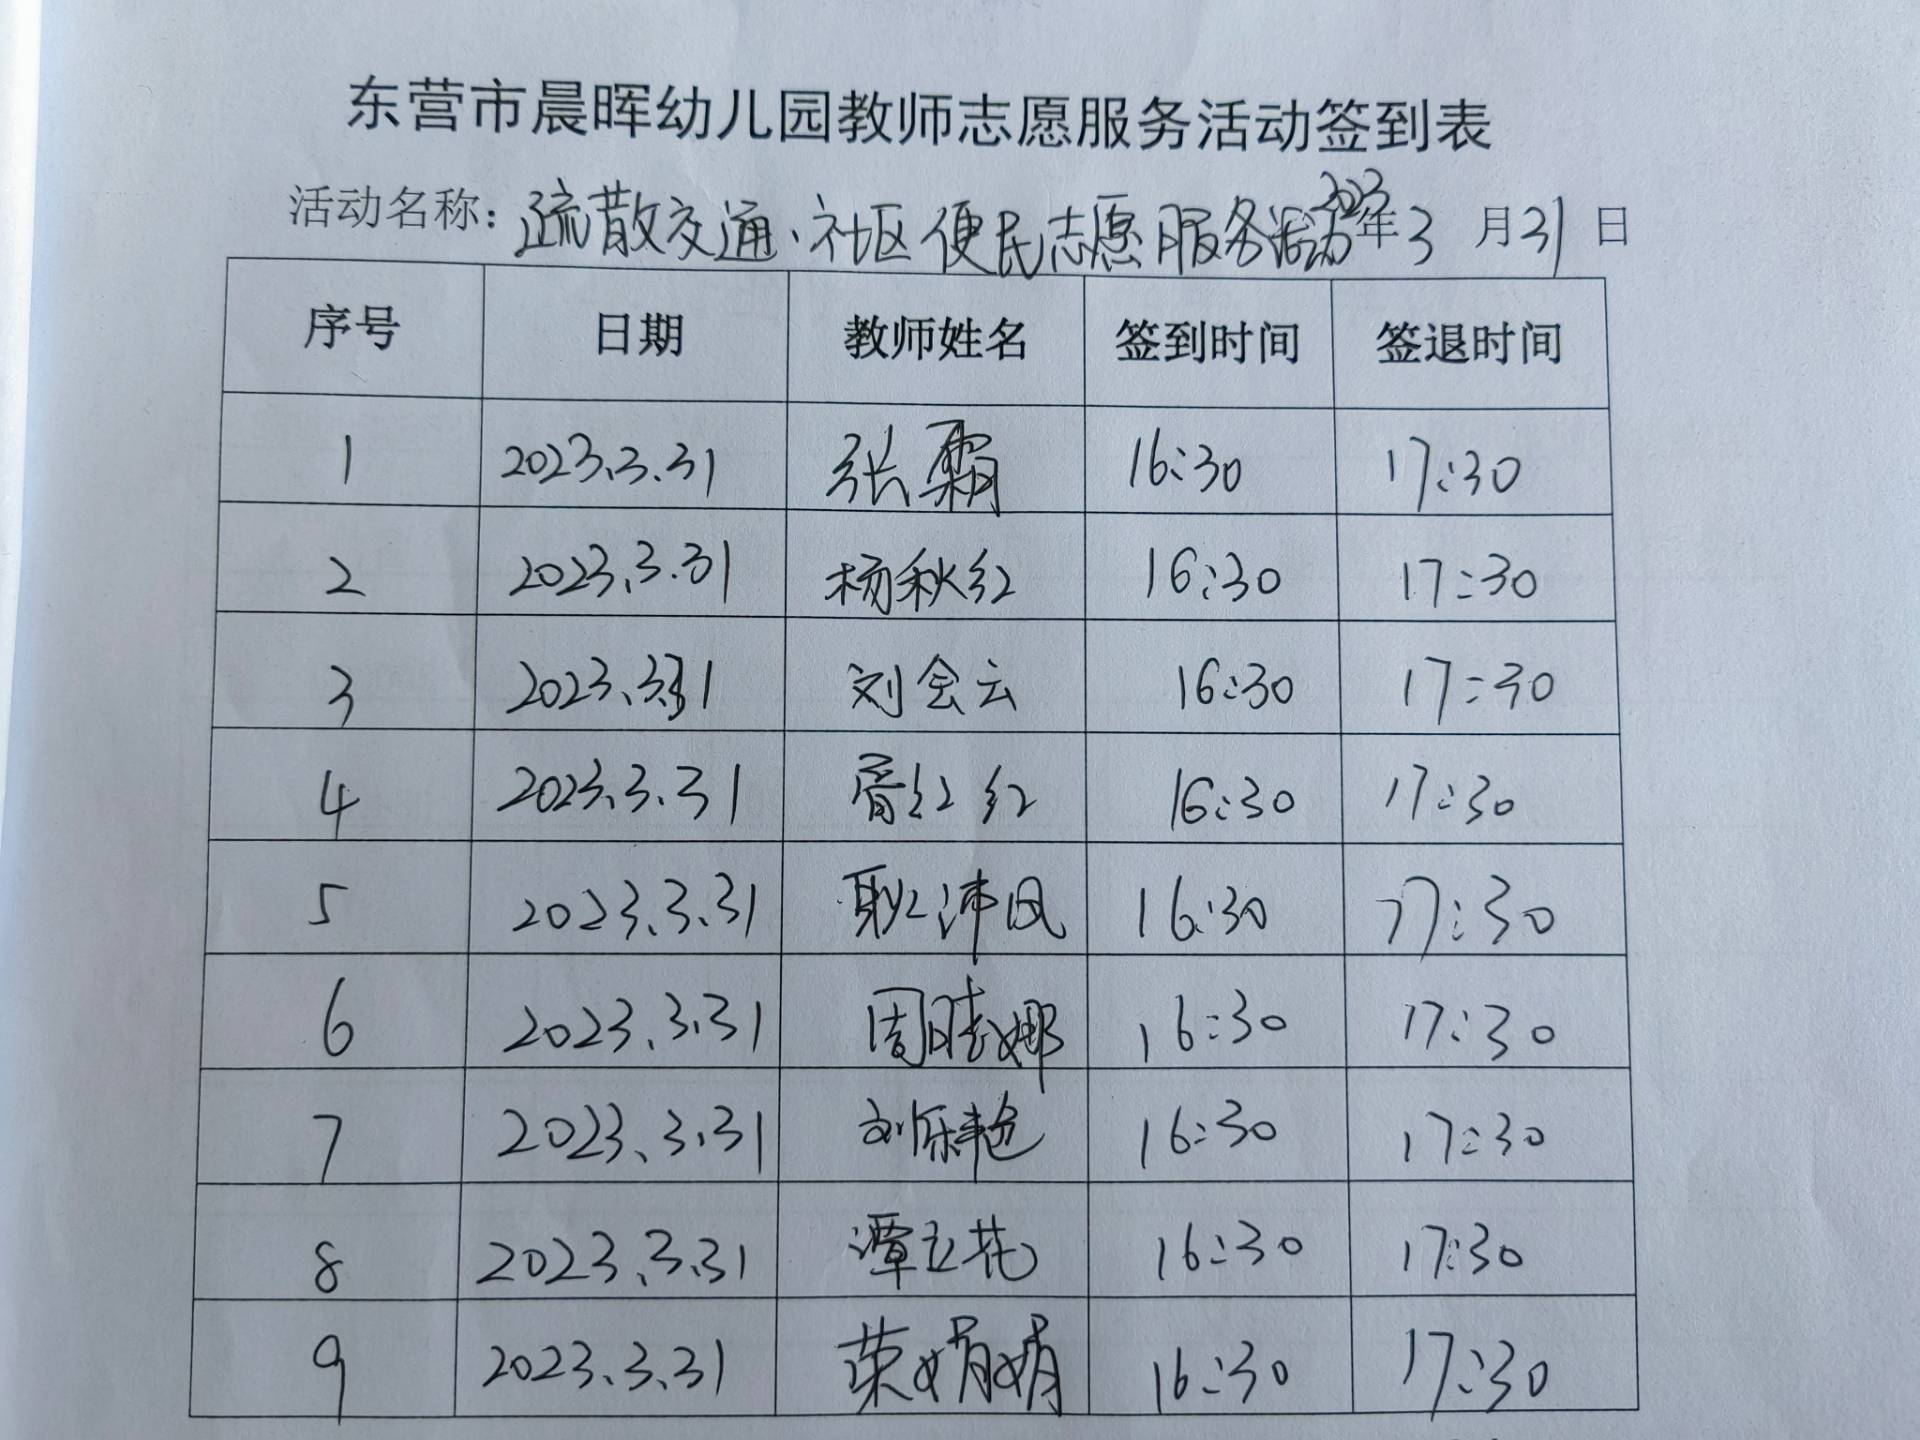 东营市晨晖幼儿园教师志愿服务活动签到表
活动名称：疏散交通、社区便民志愿服务活动 2023年3月31日
序号 日期 教师姓名 签到时间 签退时间
1 2023.3.31 张霜 16:30 17:30
2 2023.3.31 杨秋红 16:30 17:30
3 2023.3.31 刘会云 16:30 17:30
4 2023.3.31 胥红红 16:30 17:30
5 2023.3.31 耿沛凤 16:30 17:30
6 2023.3.31 周晓娜 16:30 17:30
7 2023.3.31 刘乐艳 16:30 17:30
8 2023.3.31 谭立花 16:30 17:30
9 2023.3.31 荣娟娟 16:30 17:30